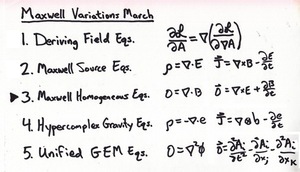 Maxwell Variations March
1. Deriving Field Eqs. ∂ℒ/∂A = ∇(∂ℒ/∂∇A)
2. Maxwell Source Eqs. ρ = ∇·E J⃗ = ∇×B - ∂E/∂t
▶3. Maxwell Homogeneous Eqs. 0 = ∇·B 0⃗ = ∇×E + ∂B/∂t
4. Hypercomplex Gravity Eqs. ρ = -∇·e J⃗ = ∇⊗b - ∂e/∂t
5. Unified GEM Eqs. 0 = ∇²φ 0⃗ =